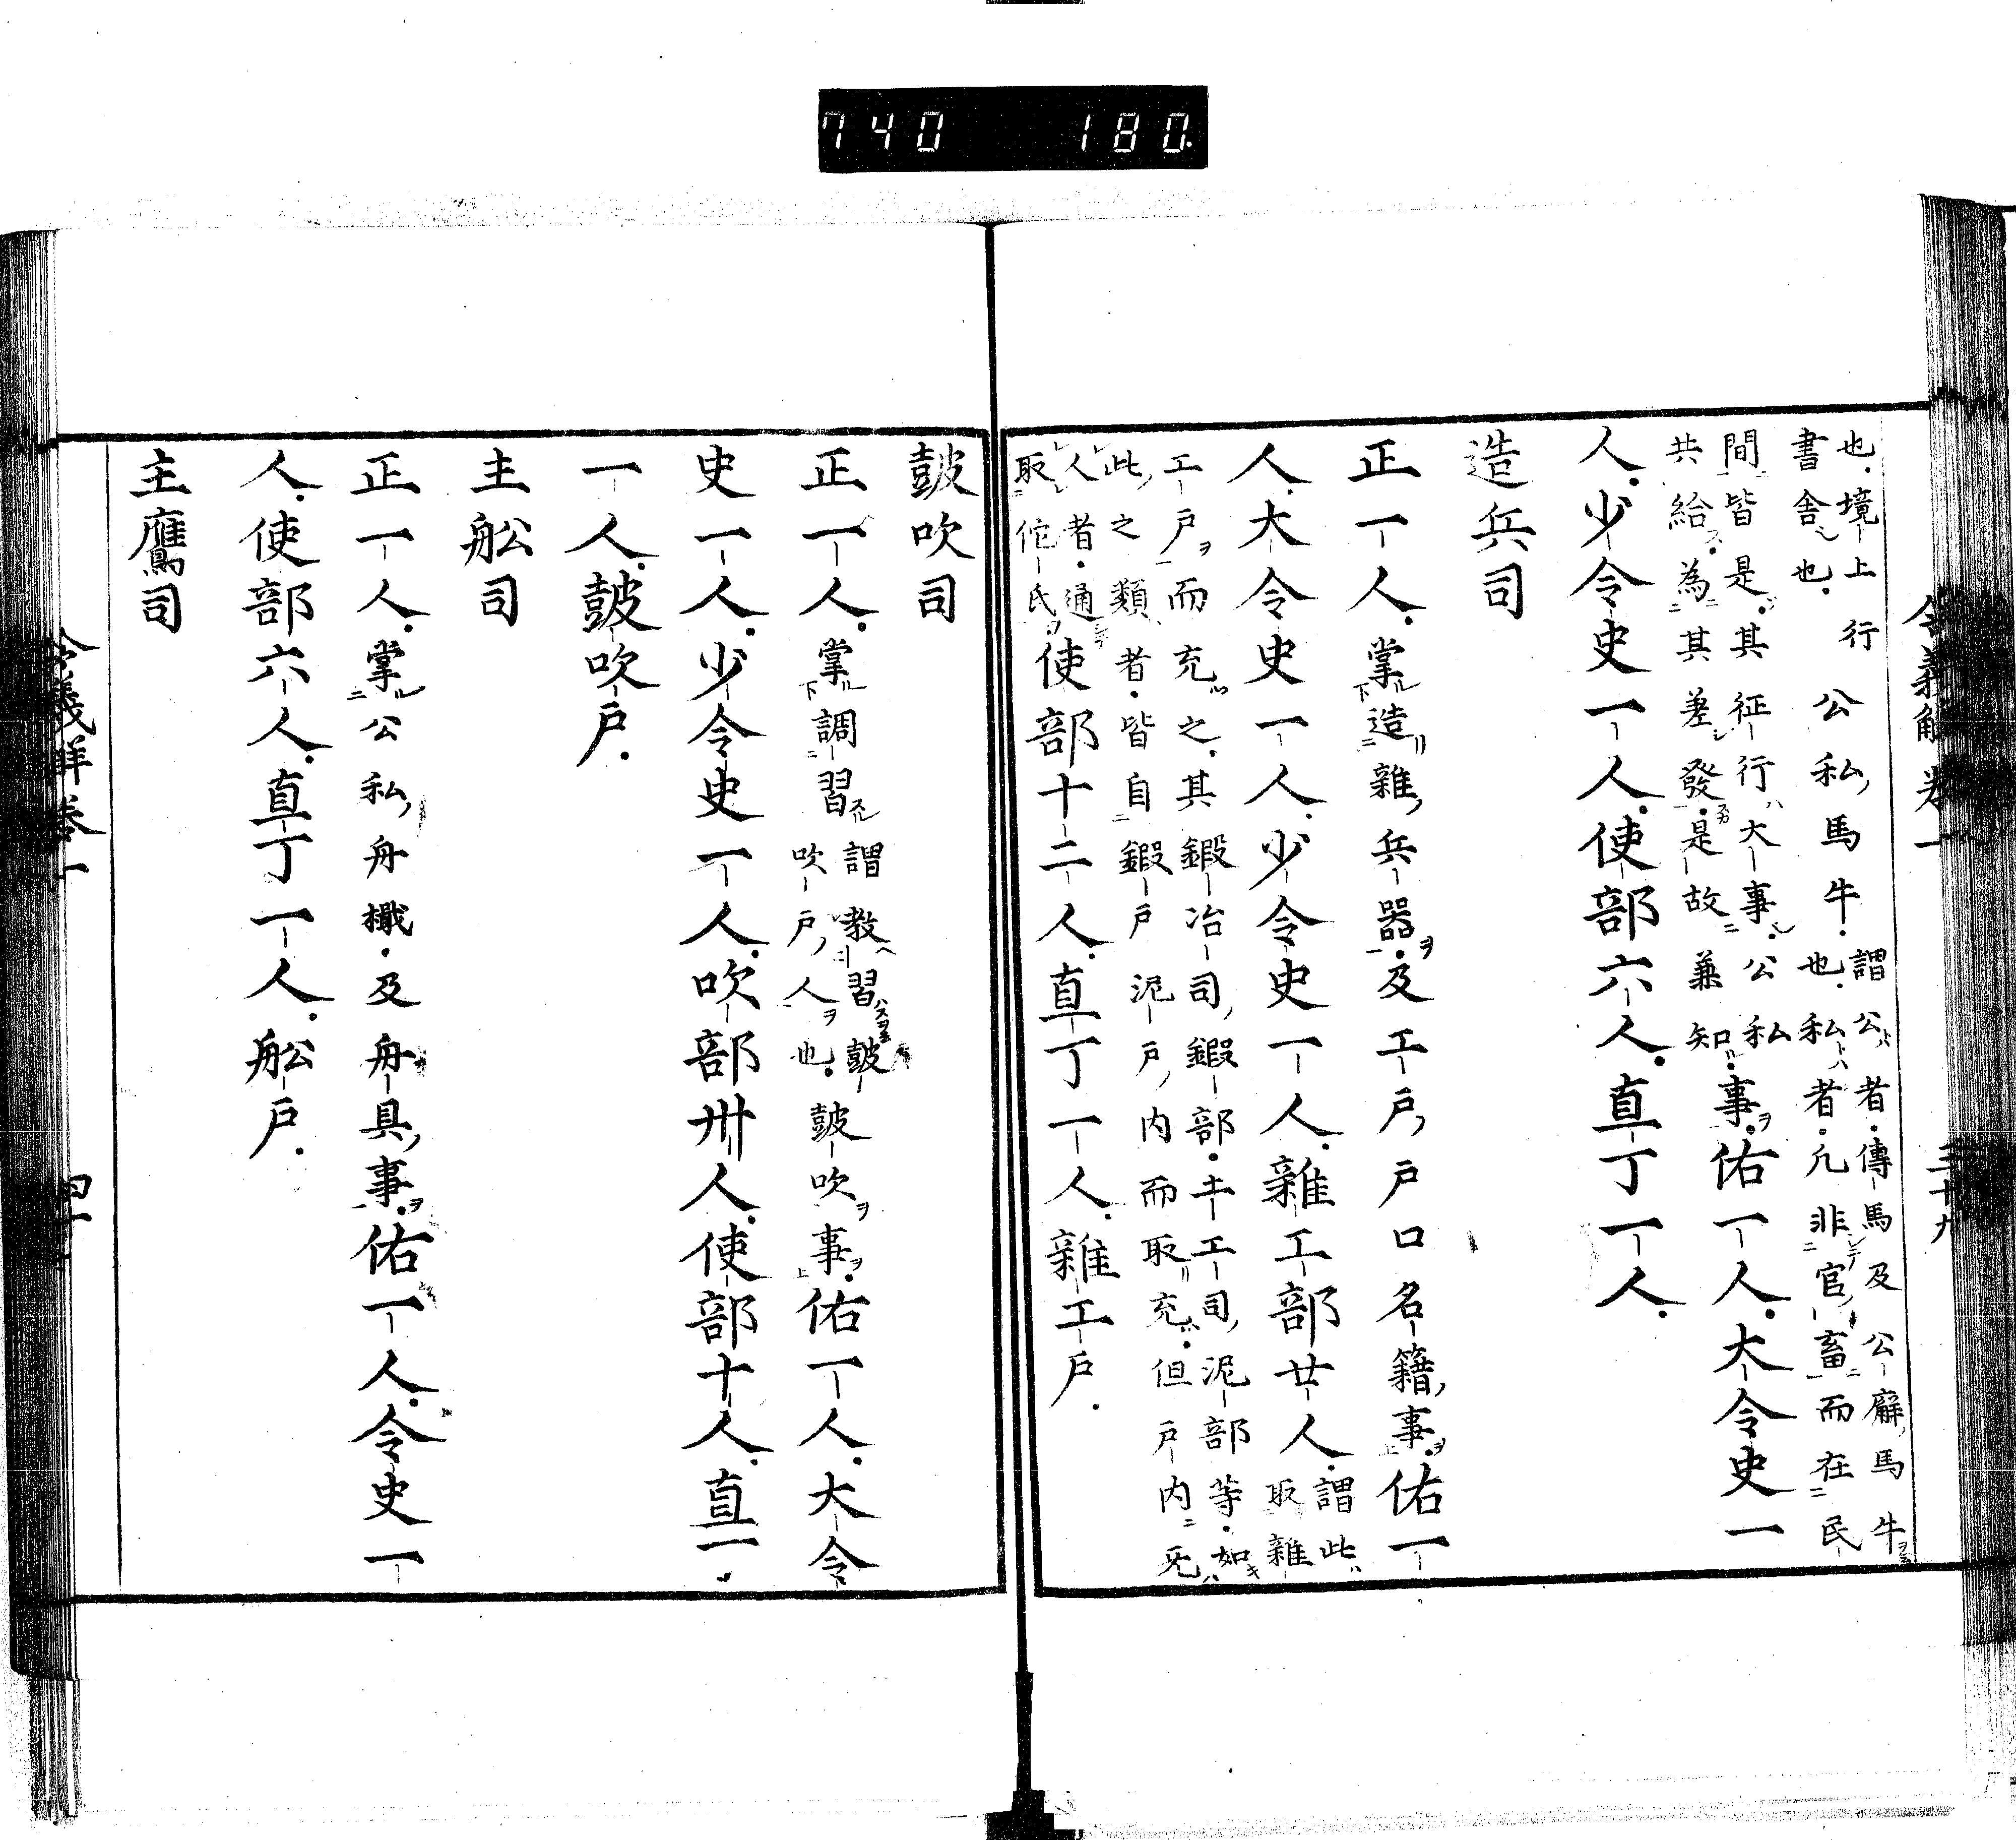 740 180.
令義解卷一 三十九
也境上行公私馬牛謂公者傳馬及公廨馬牛
書舍也也私者凡非官畜而在民
間皆是其征行大事公私
共給為其差發是故兼知事佑一人大令史一
人少令史一人使部六人直丁一人
造兵司
正一人掌造雜兵器及工戶戶口名籍事佑一
人大令史一人少令史一人雜工部廿人謂此取雜
工戶而充之其鍛冶司鍛部土工司泥部等如
此之類者皆自鍛戶泥戶內而取充但戶內无
人者通
取佗氏使部十二人直丁一人雜工戶
鼓吹司
正一人掌調習謂教習鼓吹戶人也鼓吹事佑一人大令
史一人少令史一人吹部卅人使部十人直一
一人鼓吹戶
主舩司
正一人掌公私舟檝及舟具事佑一人令史一
人使部六人直丁一人舩戶
主鷹司
令義解卷一